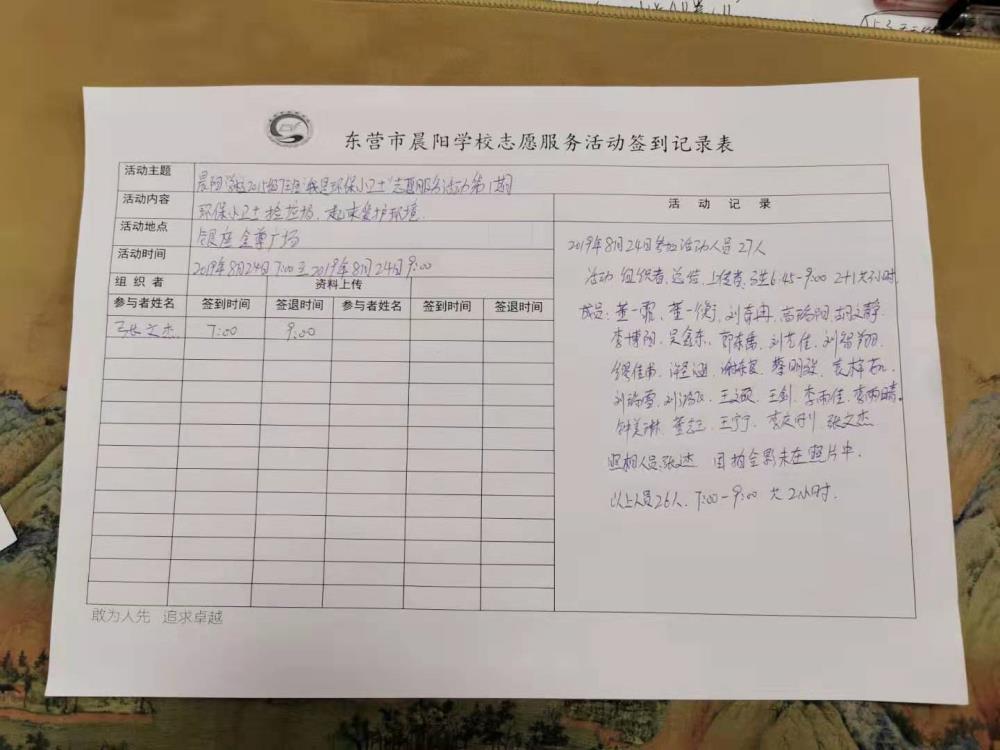 东营市晨阳学校志愿服务活动签到记录表
活动主题 晨阳学校2015级7班"我是环保小卫士"志愿服务活动第1期
活动内容 环保小卫士捡垃圾,起来爱护环境.
活动地点 银座金尊广场
活动时间 2019年8月24日7:00至2019年8月24日9:00
组织者 资料上传
参与者姓名 签到时间 签退时间 参与者姓名 签到时间 签退时间
张文杰 7:00 9:00
活动记录
2019年8月24日参加活动人员27人
活动组织者,总结,上传者, 6:45-9:00 共 小时.
成员:董一霏、董一衡、刘 冉、高 阳 胡文静
李博阳、吴金东、郭东禹、刘艺佳、刘智翔.
佳 、许 涵、 、蔡明 、袁梓
刘 雪、刘 、王文 、王剑、李雨佳、李雨晴。
钟美琳、董 、王宁宁、李庆 、张文杰
照相人员:张文杰 因拍全影未在照片中.
以上人员26人、7:00-9:00 共2小时.
敢为人先 追求卓越